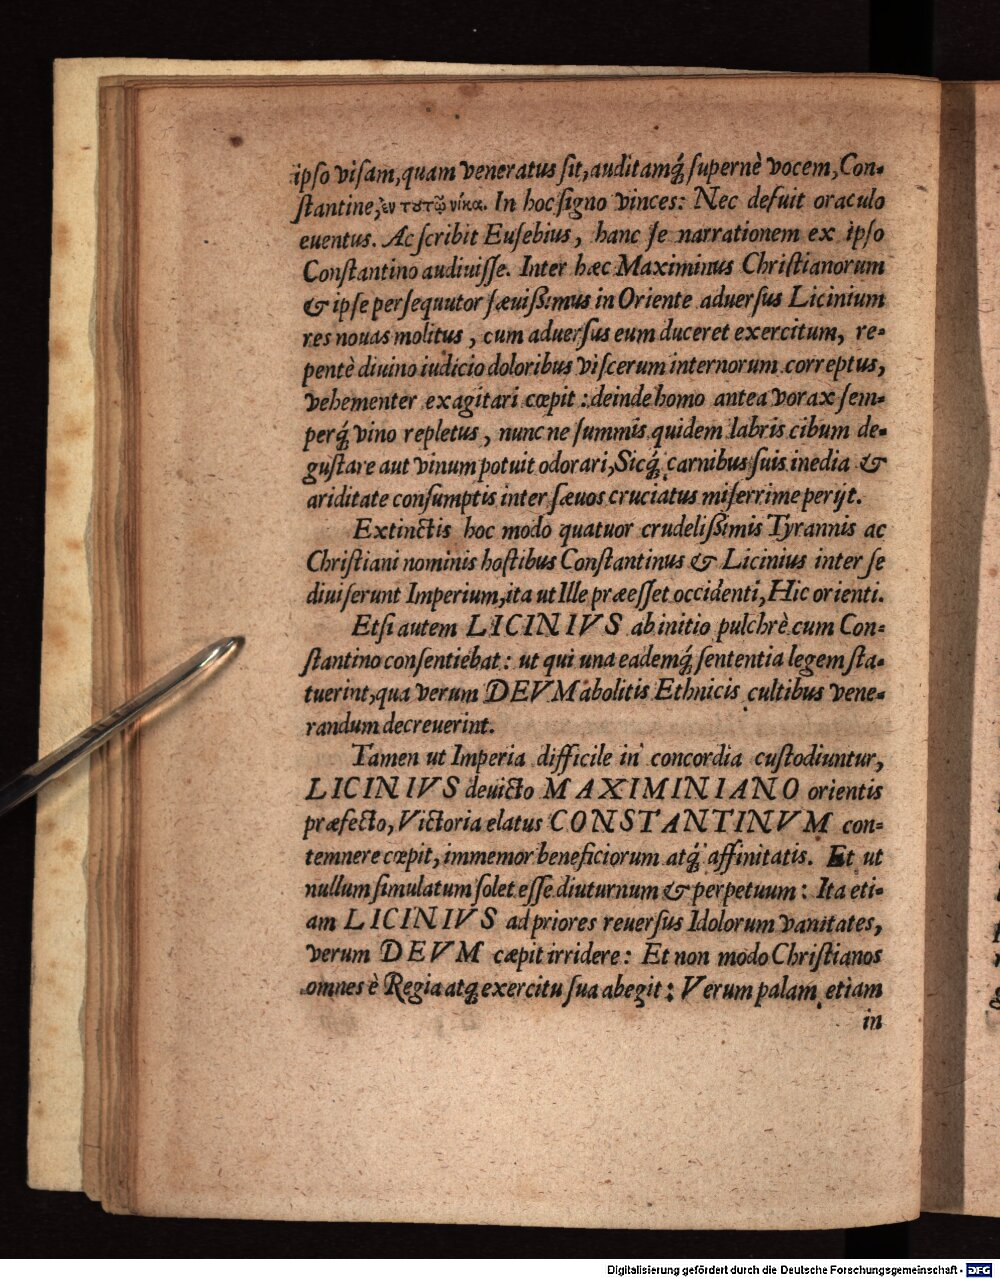 ipso visam, quam veneratus sit, auditamq́; supernè vocem, Con-
stantine, ἐν τȣτῷ νίκα. In hoc signo vinces: Nec defuit oraculo
euentus. Ac scribit Eusebius, hanc se narrationem ex ipso
Constantino audiuisse. Inter hæc Maximinus Christianorum
& ipse persequutor sæuißimus in Oriente aduersus Licinium
res nouas molitus, cum aduersus eum duceret exercitum, re-
pentè diuino iudicio doloribus viscerum internorum correptus,
vehementer exagitari cœpit: deinde homo antea vorax sem-
perq́; vino repletus, nunc ne summis quidem labris cibum de-
gustare aut vinum potuit odorari, Sicq́; carnibus suis inedia &
ariditate consumptis inter sæuos cruciatus miserrime perijt.
Extinctis hoc modo quatuor crudelißimis Tyrannis ac
Christiani nominis hostibus Constantinus & Licinius inter se
diuiserunt Imperium, ita ut Ille præesset occidenti, Hic orienti.
Etsi autem LICINIVS ab initio pulchrè cum Con-
stantino consentiebat: ut qui una eademq́; sententia legem sta-
tuerint, qua verum DEVM abolitis Ethnicis cultibus vene-
randum decreuerint.
Tamen ut Imperia difficile in concordia custodiuntur,
LICINIVS deuicto MAXIMINIANO orientis
præfecto, Victoria elatus CONSTANTINVM con-
temnere cœpit, immemor beneficiorum atq́; affinitatis. Et ut
nullum simulatum solet esse diuturnum & perpetuum: Ita eti-
am LICINIVS ad priores reuersus Idolorum vanitates,
verum DEVM cæpit irridere: Et non modo Christianos
omnes è Regia atq; exercitu sua abegit: Verum palam etiam
in
Digitalisierung gefördert durch die Deutsche Forschungsgemeinschaft - DFG